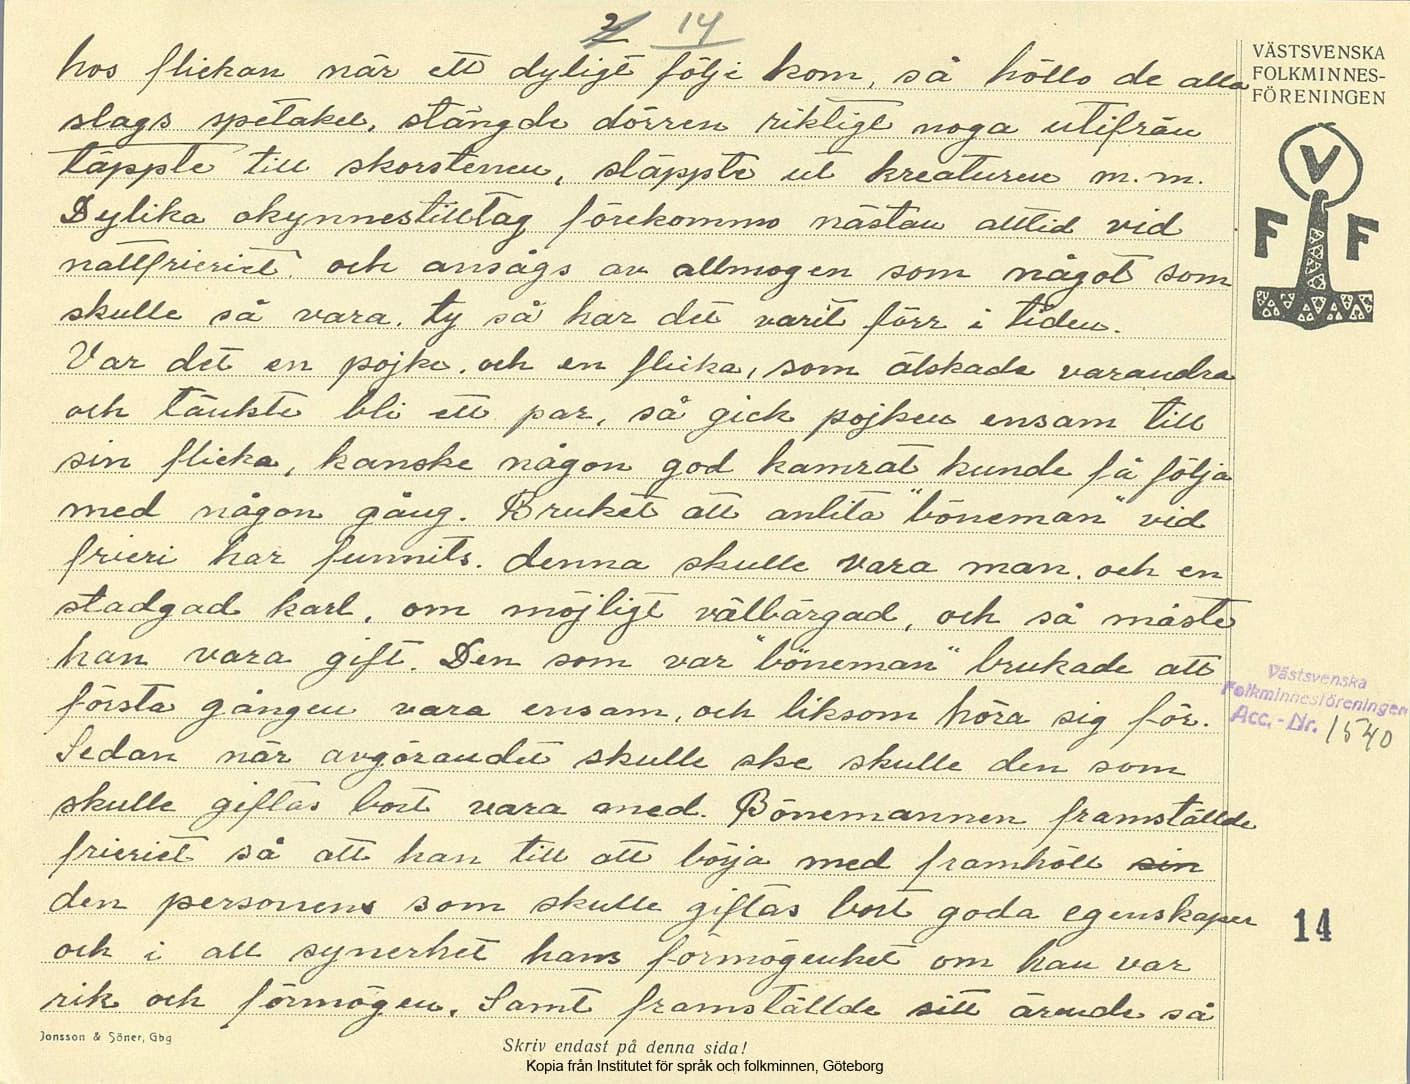 2 14
VÄSTSVENSKA
FOLKMINNES-
FÖRENINGEN
V
F F
hos flickan när ett dyligt följe kom, så höllo de alla
slags spetakel, stängde dörren riktigt noga utifrån
täppte till skorstenen, släppte ut kreaturen m.m.
Dylika okynnestilltag förekommo nästan alltid vid
nattfrieriet och ansågs av allmogen som något som
skulle så vara. ty så har det varit förr i tiden.
Var det en pojke och en flicka, som älskade varandra
och tänkte bli ett par, så gick pojken ensam till
sin flicka, kanske någon god kamrat kunde få följa
med någon gång. Bruket att anlita "böneman" vid
frieri har funnits. denna skulle vara man, och en
stadgad karl, om möjligt välbärgad, och så måste
han vara gift. Den som var "böneman" brukade att
första gången vara ensam, och liksom höra sig för.
Sedan när avgörandet skulle ske skulle den som
skulle giftas bort vara med. Bönemannen framställde
frieriet så att han till att börja med framhöll sin
den personens som skulle giftas bort goda egenskaper
och i all synerhet hans förmögenhet om han var
rik och förmögen. Samt framställde sitt ärende så
Västsvenska
Folkminnesföreningen
Acc.-Nr. 1540
14
Jonsson & Söner, Gbg
Skriv endast på denna sida!
Kopia från Institutet för språk och folkminnen, Göteborg